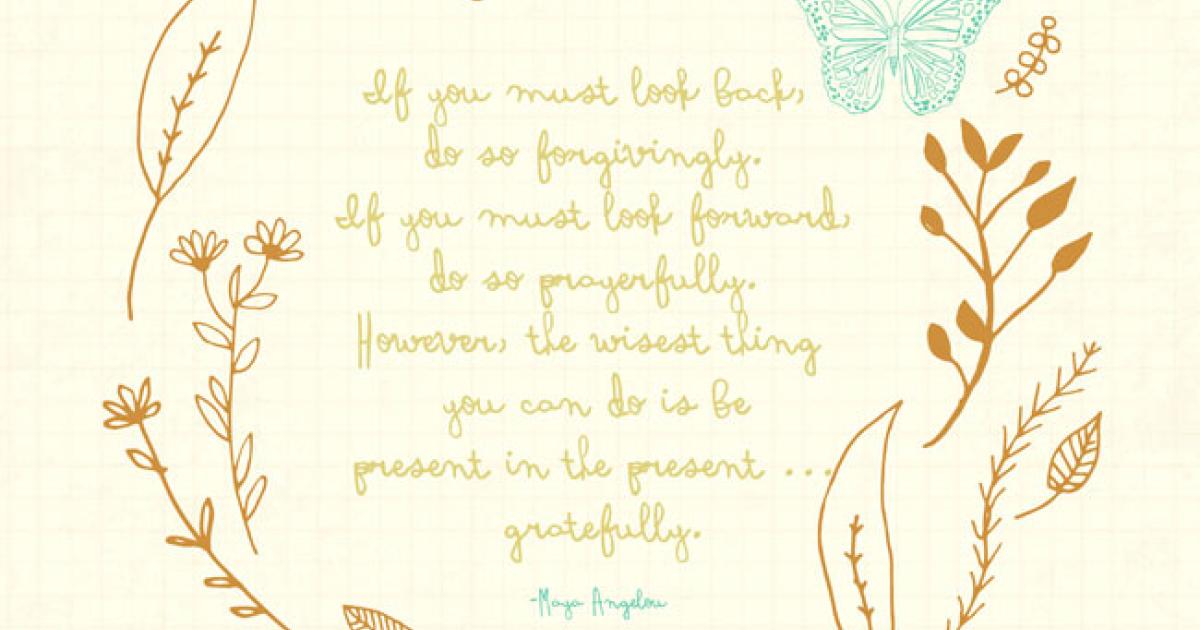 If you must look back,
do so forgivingly.
If you must look forward,
do so prayerfully.
However, the wisest thing
you can do is be
present in the present ...
gratefully.
-Maya Angelou